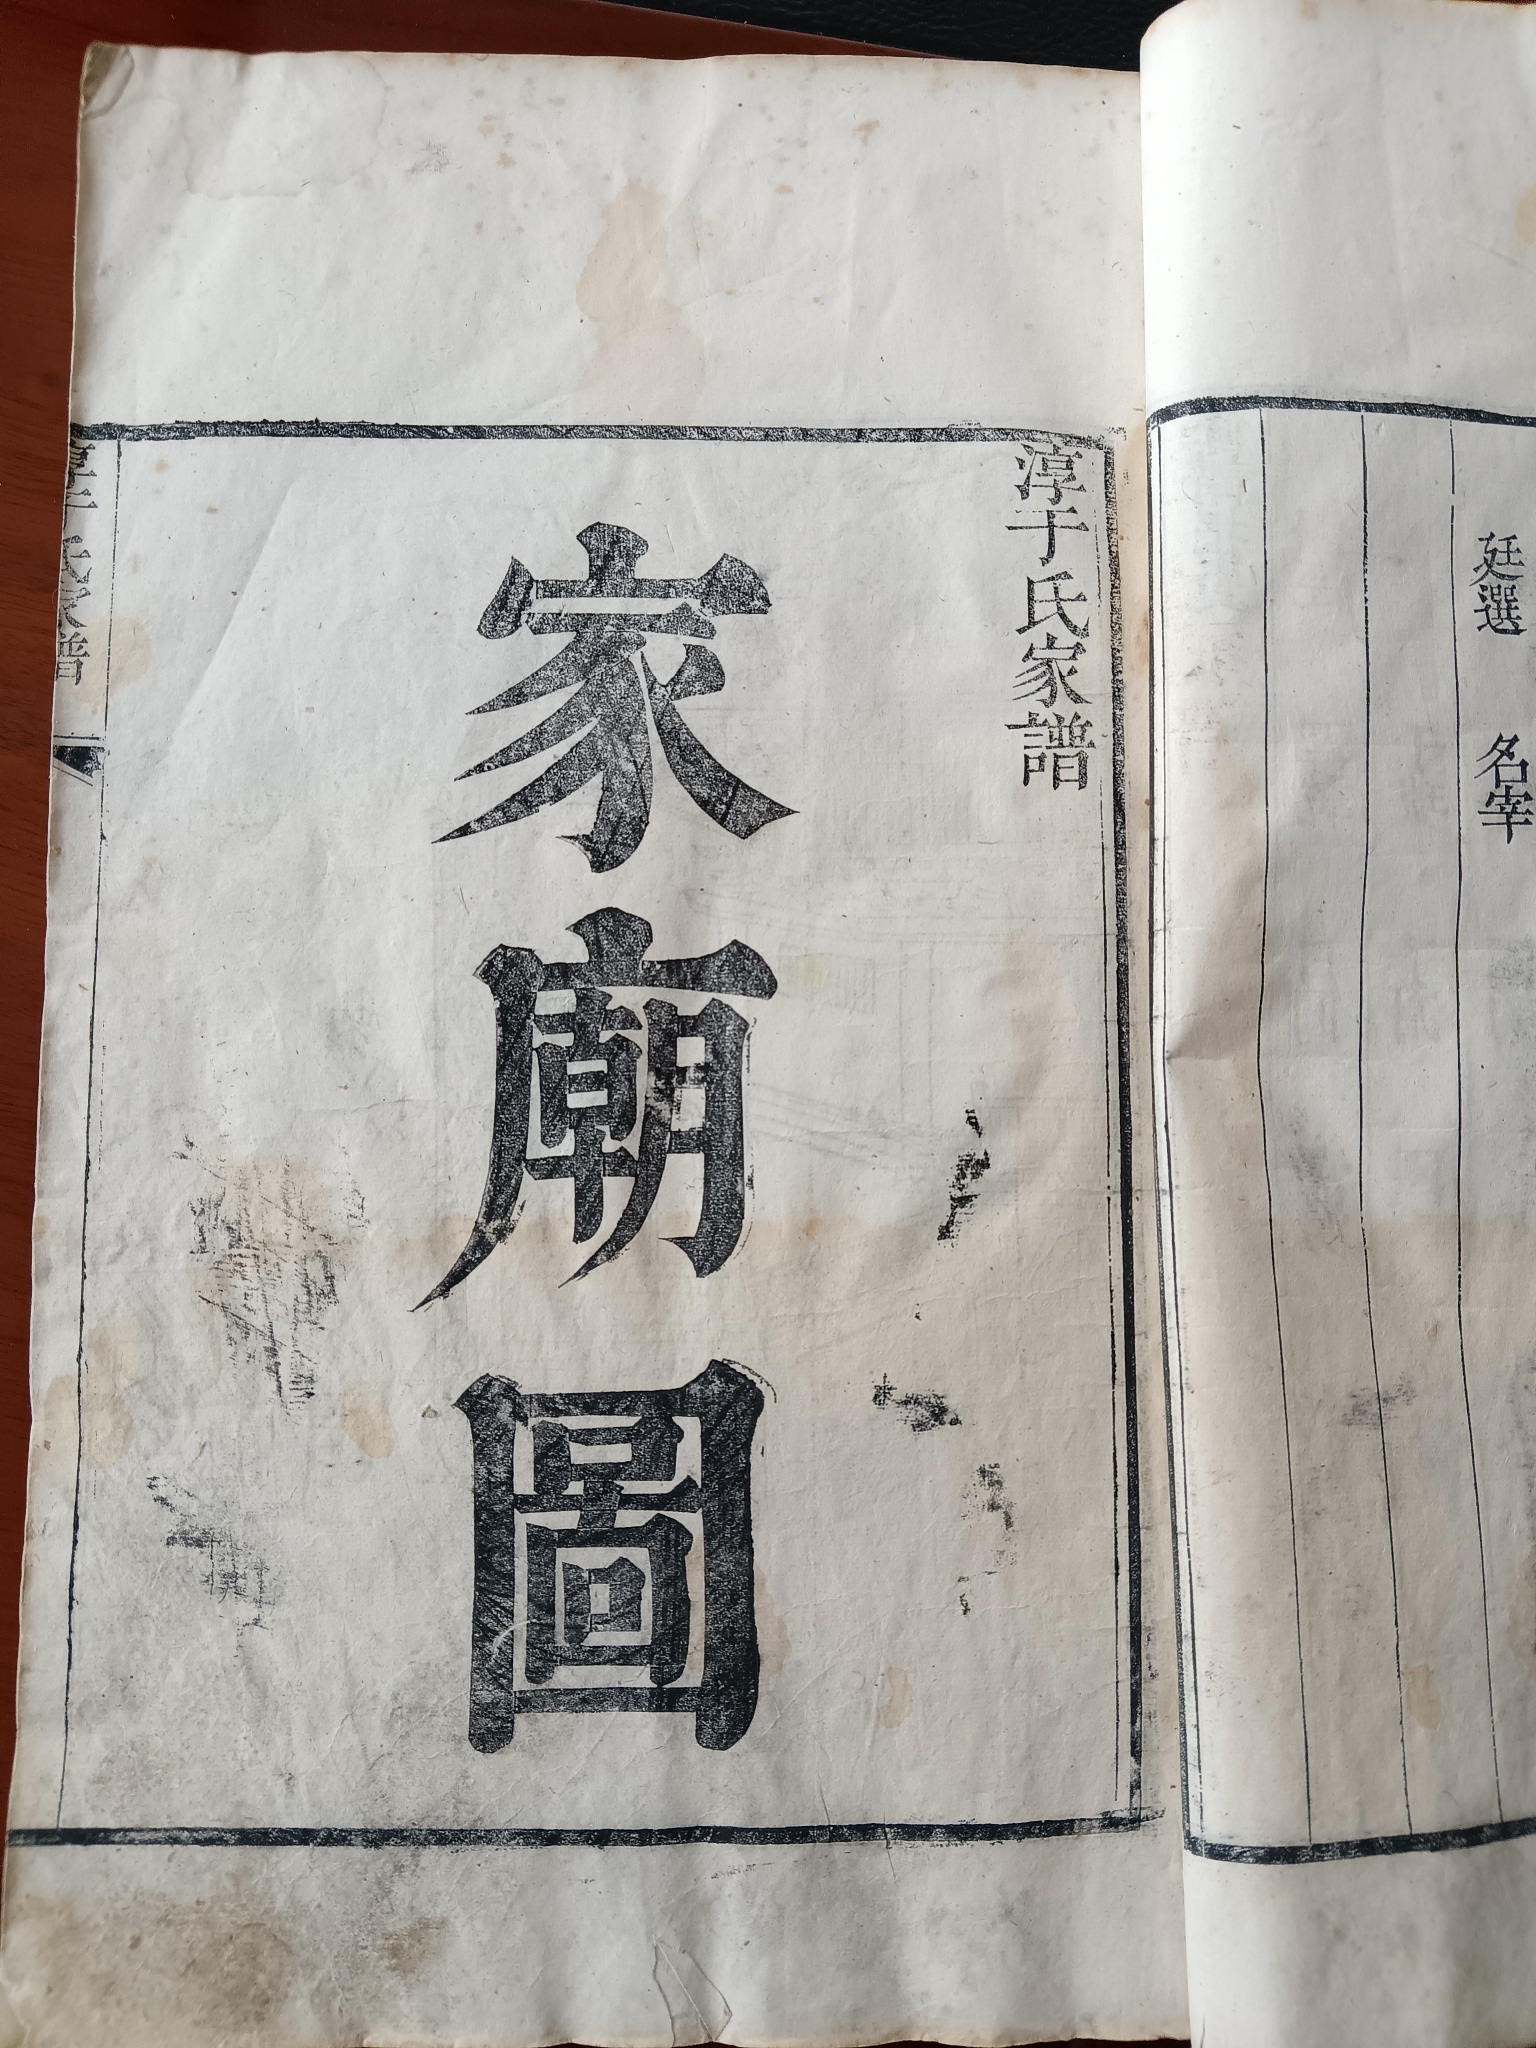 廷選 名宰
淳于氏家譜
家廟圖
淳于氏家譜